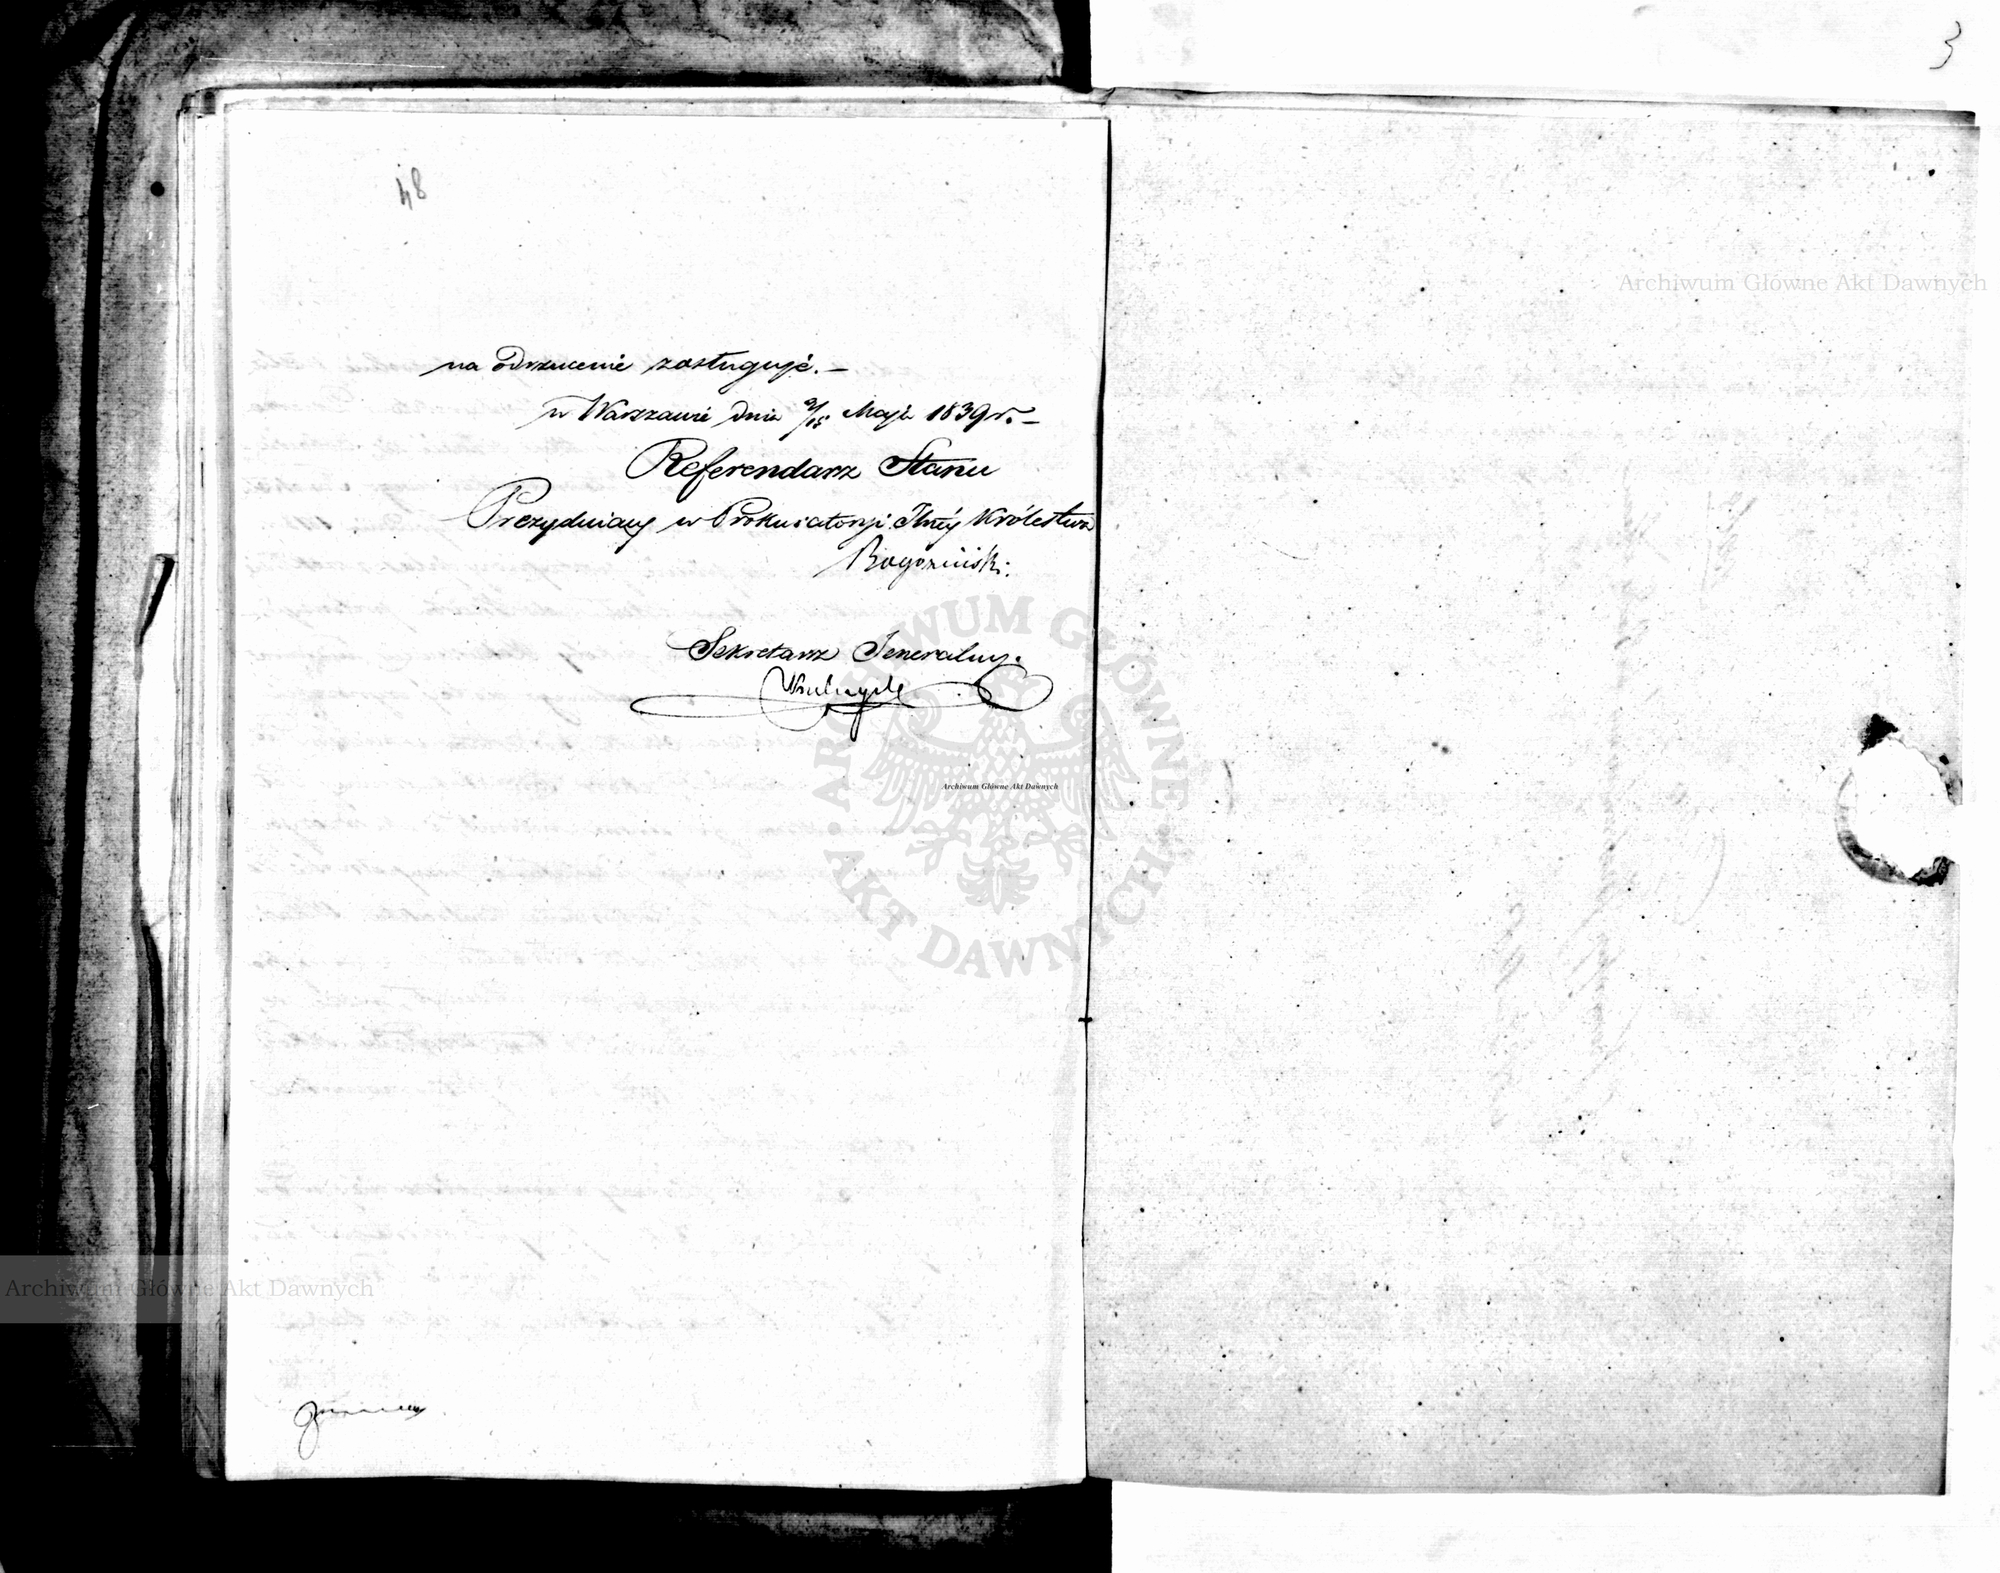 3
48
na odrzucenie zasługuje. —
w Warszawie dnia 3/15 Maja 1839 r. —
Referendarz Stanu
Prezydujący w Prokuratoryi Jlnéy Królestwa
Rogoziński.
Sekretarz Jeneralny.
Archiwum Główne Akt Dawnych
ARCHIWUM GŁÓWNE AKT DAWNYCH
Archiwum Główne Akt Dawnych
Archiwum Główne Akt Dawnych